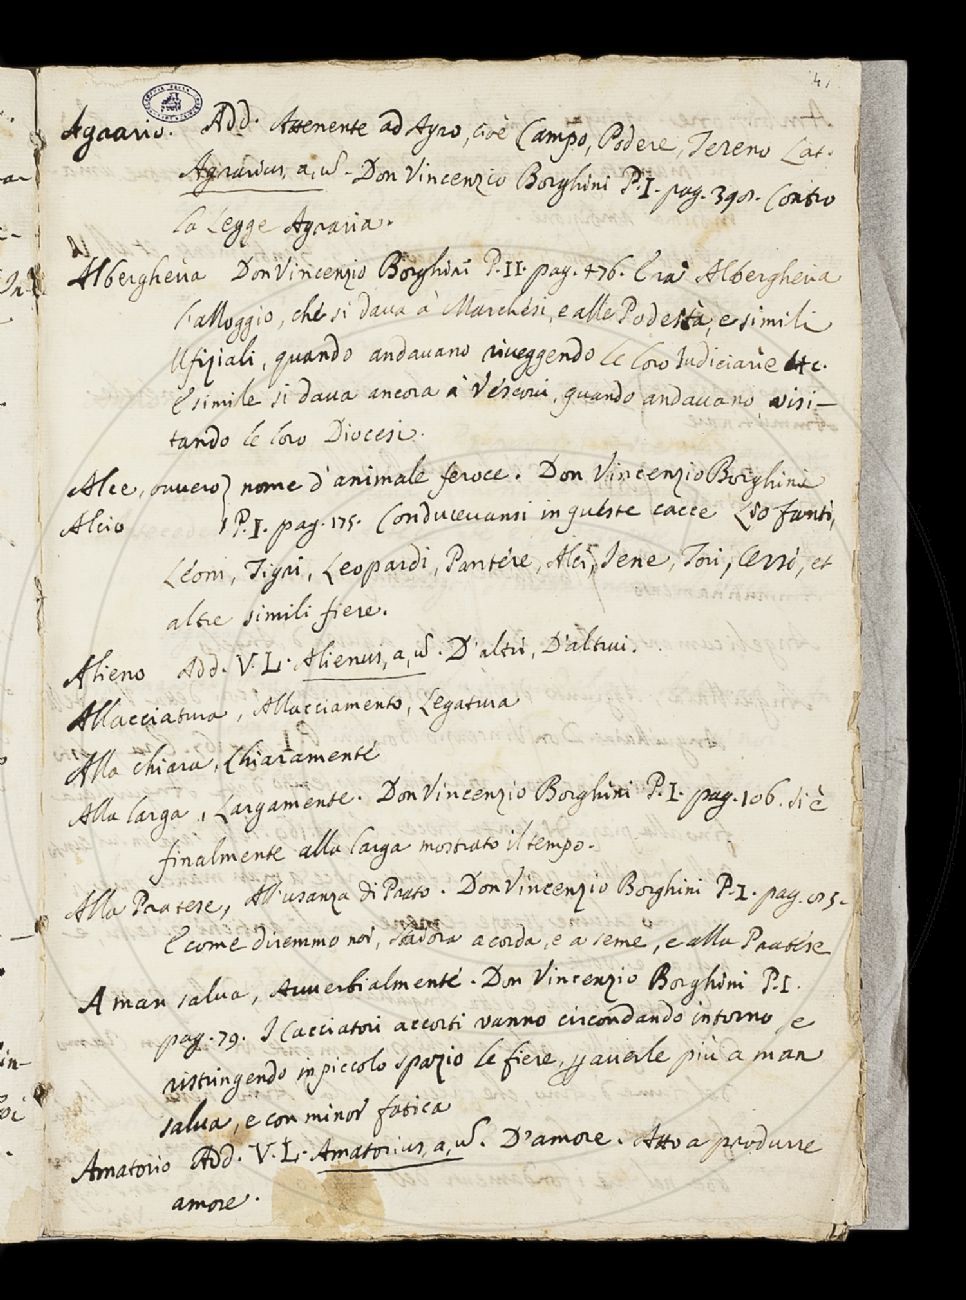 4,
Agrario. Add. Attenente ad Agro, cioè Campo, Podere, Tereno Lat.
Agrarius, a, ũ. Don Vincenzio Borghini P.I. pag. 390. Contro
la Legge Agraria.
Albergheria Don Vincenzio Borghini P.II. pag. 476. Era Albergheria
l'alloggio, che si dava a' Marchesi, e alle Podestà, e simili
Ufiziali, quando andavano riveggendo le loro Iudiciarie etc.
E simile si dava ancora a' Vescovi, quando andavano visi-
tando le loro Diocesi.
Alce, ovvero} nome d'animale feroce. Don Vincenzio Borghini
Alcio } P.I. pag. 175. Conducevansi in queste cacce Liofanti,
Leoni, Tigri, Leopardi, Pantere, Alci, Iene, Tori, Cervi, et
altre simili fiere.
Alieno Add. V. L. Alienus, a, ũ. D'altri, D'altrui.
Allacciatura, Allacciamento, Legatura
Alla chiara, Chiaramente
Alla larga, Largamente. Don Vincenzio Borghini P.I. pag. 106. Si è
finalmente alla larga mostrato il tempo.
Alla Pratese, All'usanza di Prato. Don Vincenzio Borghini P.I. pag.
E come diremmo noi, a corda, e a seme, e alla Pratese
A man salva, Avverbialmente. Don Vincenzio Borghini P.I.
pag. 79. I Cacciatori accorti vanno circondando intorno, e
ristringendo in piccolo spazio le fiere, averle più a man
salva, e con minor fatica
Amatorio Add. V. L. Amatorius, a, ũ. D'amore. Atto a produrre
amore.